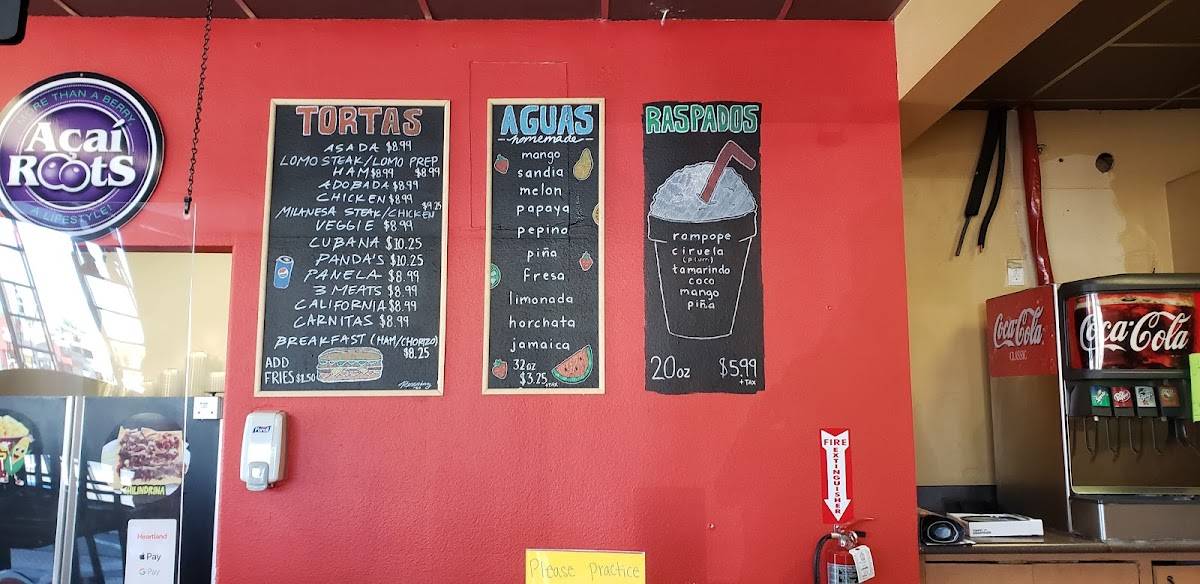 MORE THAN A BERRY
Açaí
Roots
A LIFESTYLE!
TORTAS
ASADA $8.99
LOMO STEAK/LOMO PREP
HAM $8.99 $8.99
ADOBADA $8.99
CHICKEN $8.99
MILANESA STEAK/CHICKEN $9.25
VEGGIE $8.99
CUBANA $10.25
PANDA'S $10.25
PANELA $8.99
3 MEATS $8.99
CALIFORNIA $8.99
CARNITAS $8.99
BREAKFAST (HAM/CHORIZO)
$8.25
ADD
FRIES $1.50
pepsi
AGUAS
homemade
mango
sandia
melon
papaya
pepino
piña
fresa
limonada
horchata
jamaica
32oz
$3.25 +TAX
RASPADOS
rompope
ciruela
(plum)
tamarindo
coco
mango
piña
20oz $5.99
+TAX
Purell
FIRE
EXTINGUISHER
Please practice
Coca-Cola
CLASSIC
Coca-Cola
Heartland
Pay
G Pay